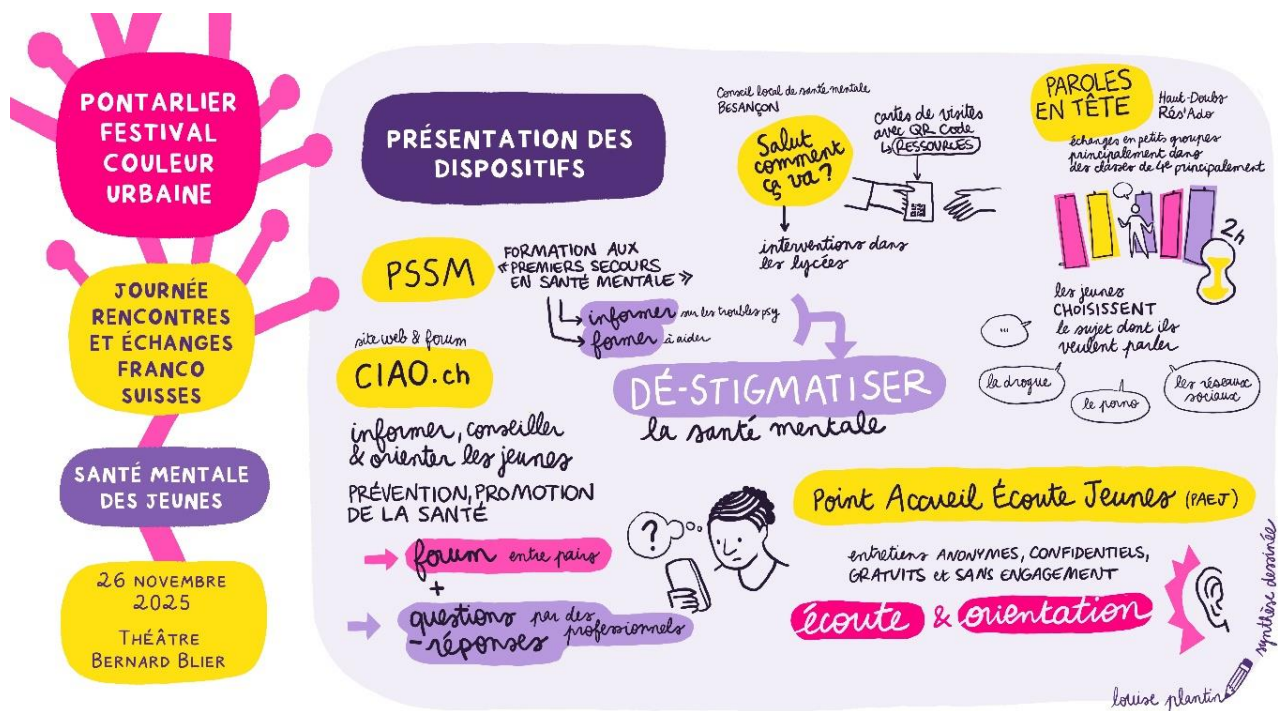 PONTARLIER
FESTIVAL
COULEUR
URBAINE
JOURNÉE
RENCONTRES
ET ÉCHANGES
FRANCO
SUISSES
SANTÉ MENTALE
DES JEUNES
26 NOVEMBRE
2025
THÉÂTRE
BERNARD BLIER
PRÉSENTATION DES
DISPOSITIFS
PSSM
FORMATION AUX
« PREMIERS SECOURS
EN SANTÉ MENTALE »
informer sur les troubles psy
former à aider
site web & forum
CIAO.ch
informer, conseiller
& orienter les jeunes
PRÉVENTION, PROMOTION
DE LA SANTÉ
forum entre pairs
+
questions par des
-réponses professionnels
?
Conseil local de santé mentale
BESANÇON
Salut
comment
ça va ?
cartes de visites
avec QR Code
RESSOURCES
interventions dans
les lycées
DÉ-STIGMATISER
la santé mentale
PAROLES
EN TÊTE
Haut-Doubs
Rés'Ado
échanges en petits groupes
principalement dans
des classes de 4e principalement
2h
les jeunes
CHOISISSENT
le sujet dont ils
veulent parler
...
la drogue
le porno
les réseaux
sociaux
Point Accueil Écoute Jeunes (PAEJ)
entretiens ANONYMES, CONFIDENTIELS,
GRATUITS et SANS ENGAGEMENT
écoute & orientation
louise plantin
synthèse dessinée